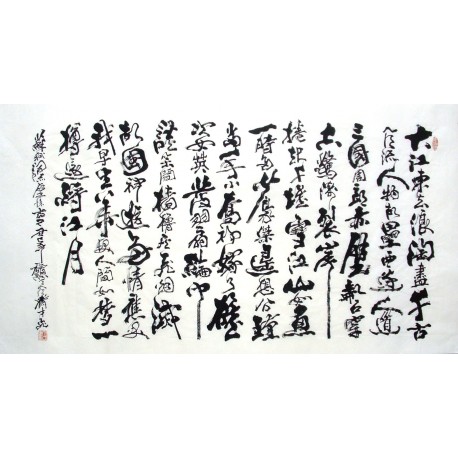 大江东去浪淘盡千古
风流人物故壘西邊人道
三國周郎赤壁亂石穿
空驚濤裂岸
捲起千堆雪江山如画
一時多少豪傑遥想公瑾
當年小喬初嫁了雄
姿英發羽扇綸巾
談笑間樯櫓灰飛烟滅
故國神遊多情應笑
我早生华髮人間如夢一
樽還酹江月